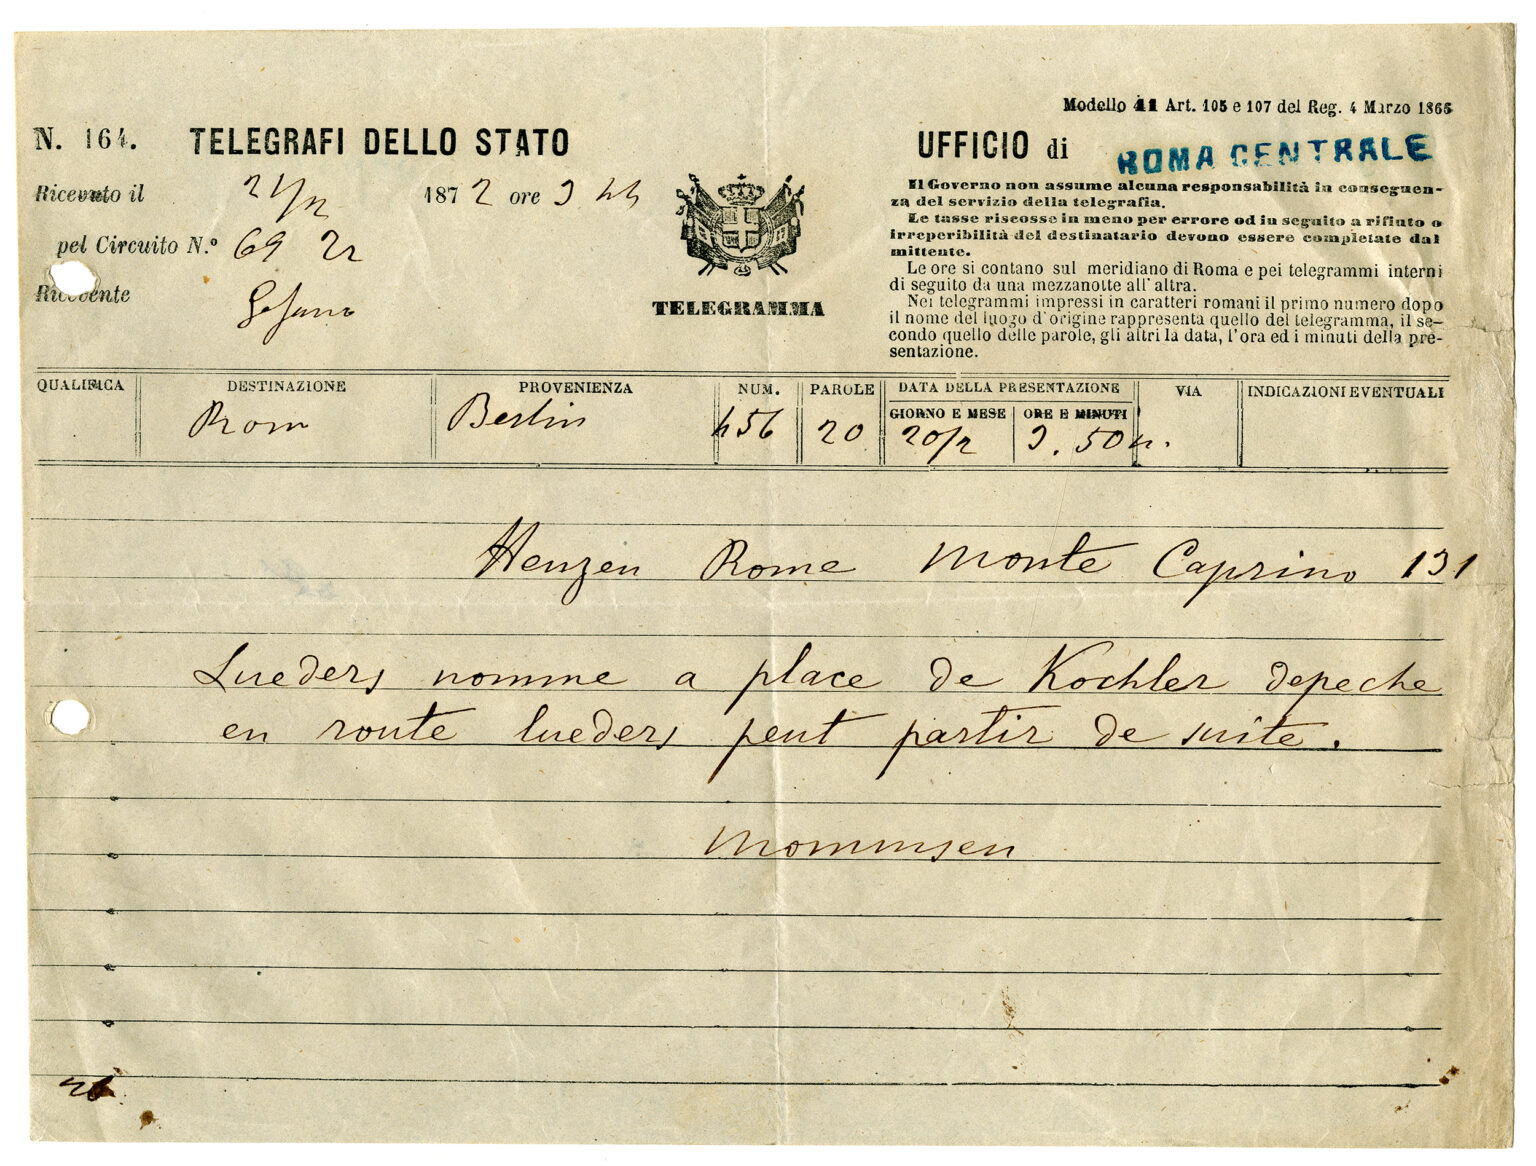 Modello 41 Art. 105 e 107 del Reg. 4 Marzo 1866
N. 164. TELEGRAFI DELLO STATO
UFFICIO di ROMA CENTRALE
Ricevuto il 21/2 1872 ore 9
pel Circuito N.º 69
Ricevente
TELEGRAMMA
Il Governo non assume alcuna responsabilità in conseguen-
za del servizio della telegrafia.
Le tasse riscosse in meno per errore od in seguito a rifiuto o
irreperibilità del destinatario devono essere completate dal
mittente.
Le ore si contano sul meridiano di Roma e pei telegrammi interni
di seguito da una mezzanotte all'altra.
Nei telegrammi impressi in caratteri romani il primo numero dopo
il nome del luogo d'origine rappresenta quello del telegramma, il se-
condo quello delle parole, gli altri la data, l'ora ed i minuti della pre-
sentazione.
QUALIFICA DESTINAZIONE PROVENIENZA NUM. PAROLE DATA DELLA PRESENTAZIONE VIA INDICAZIONI EVENTUALI
GIORNO E MESE ORE E MINUTI
Rom Berlin 456 20 20/2 9.50
Henzen Rome Monte Caprino 131
Lueders nomme a place de Kochler depeche
en route lueders peut partir de suite.
Mommsen